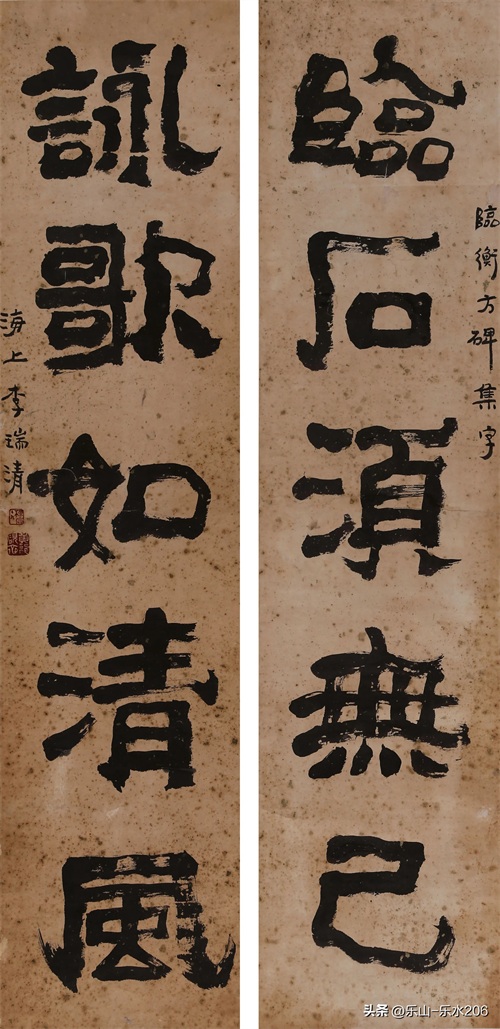 臨石須無己
臨衡方碑集字
詠歌如清風
海上李瑞清
头条 @乐山-乐水206